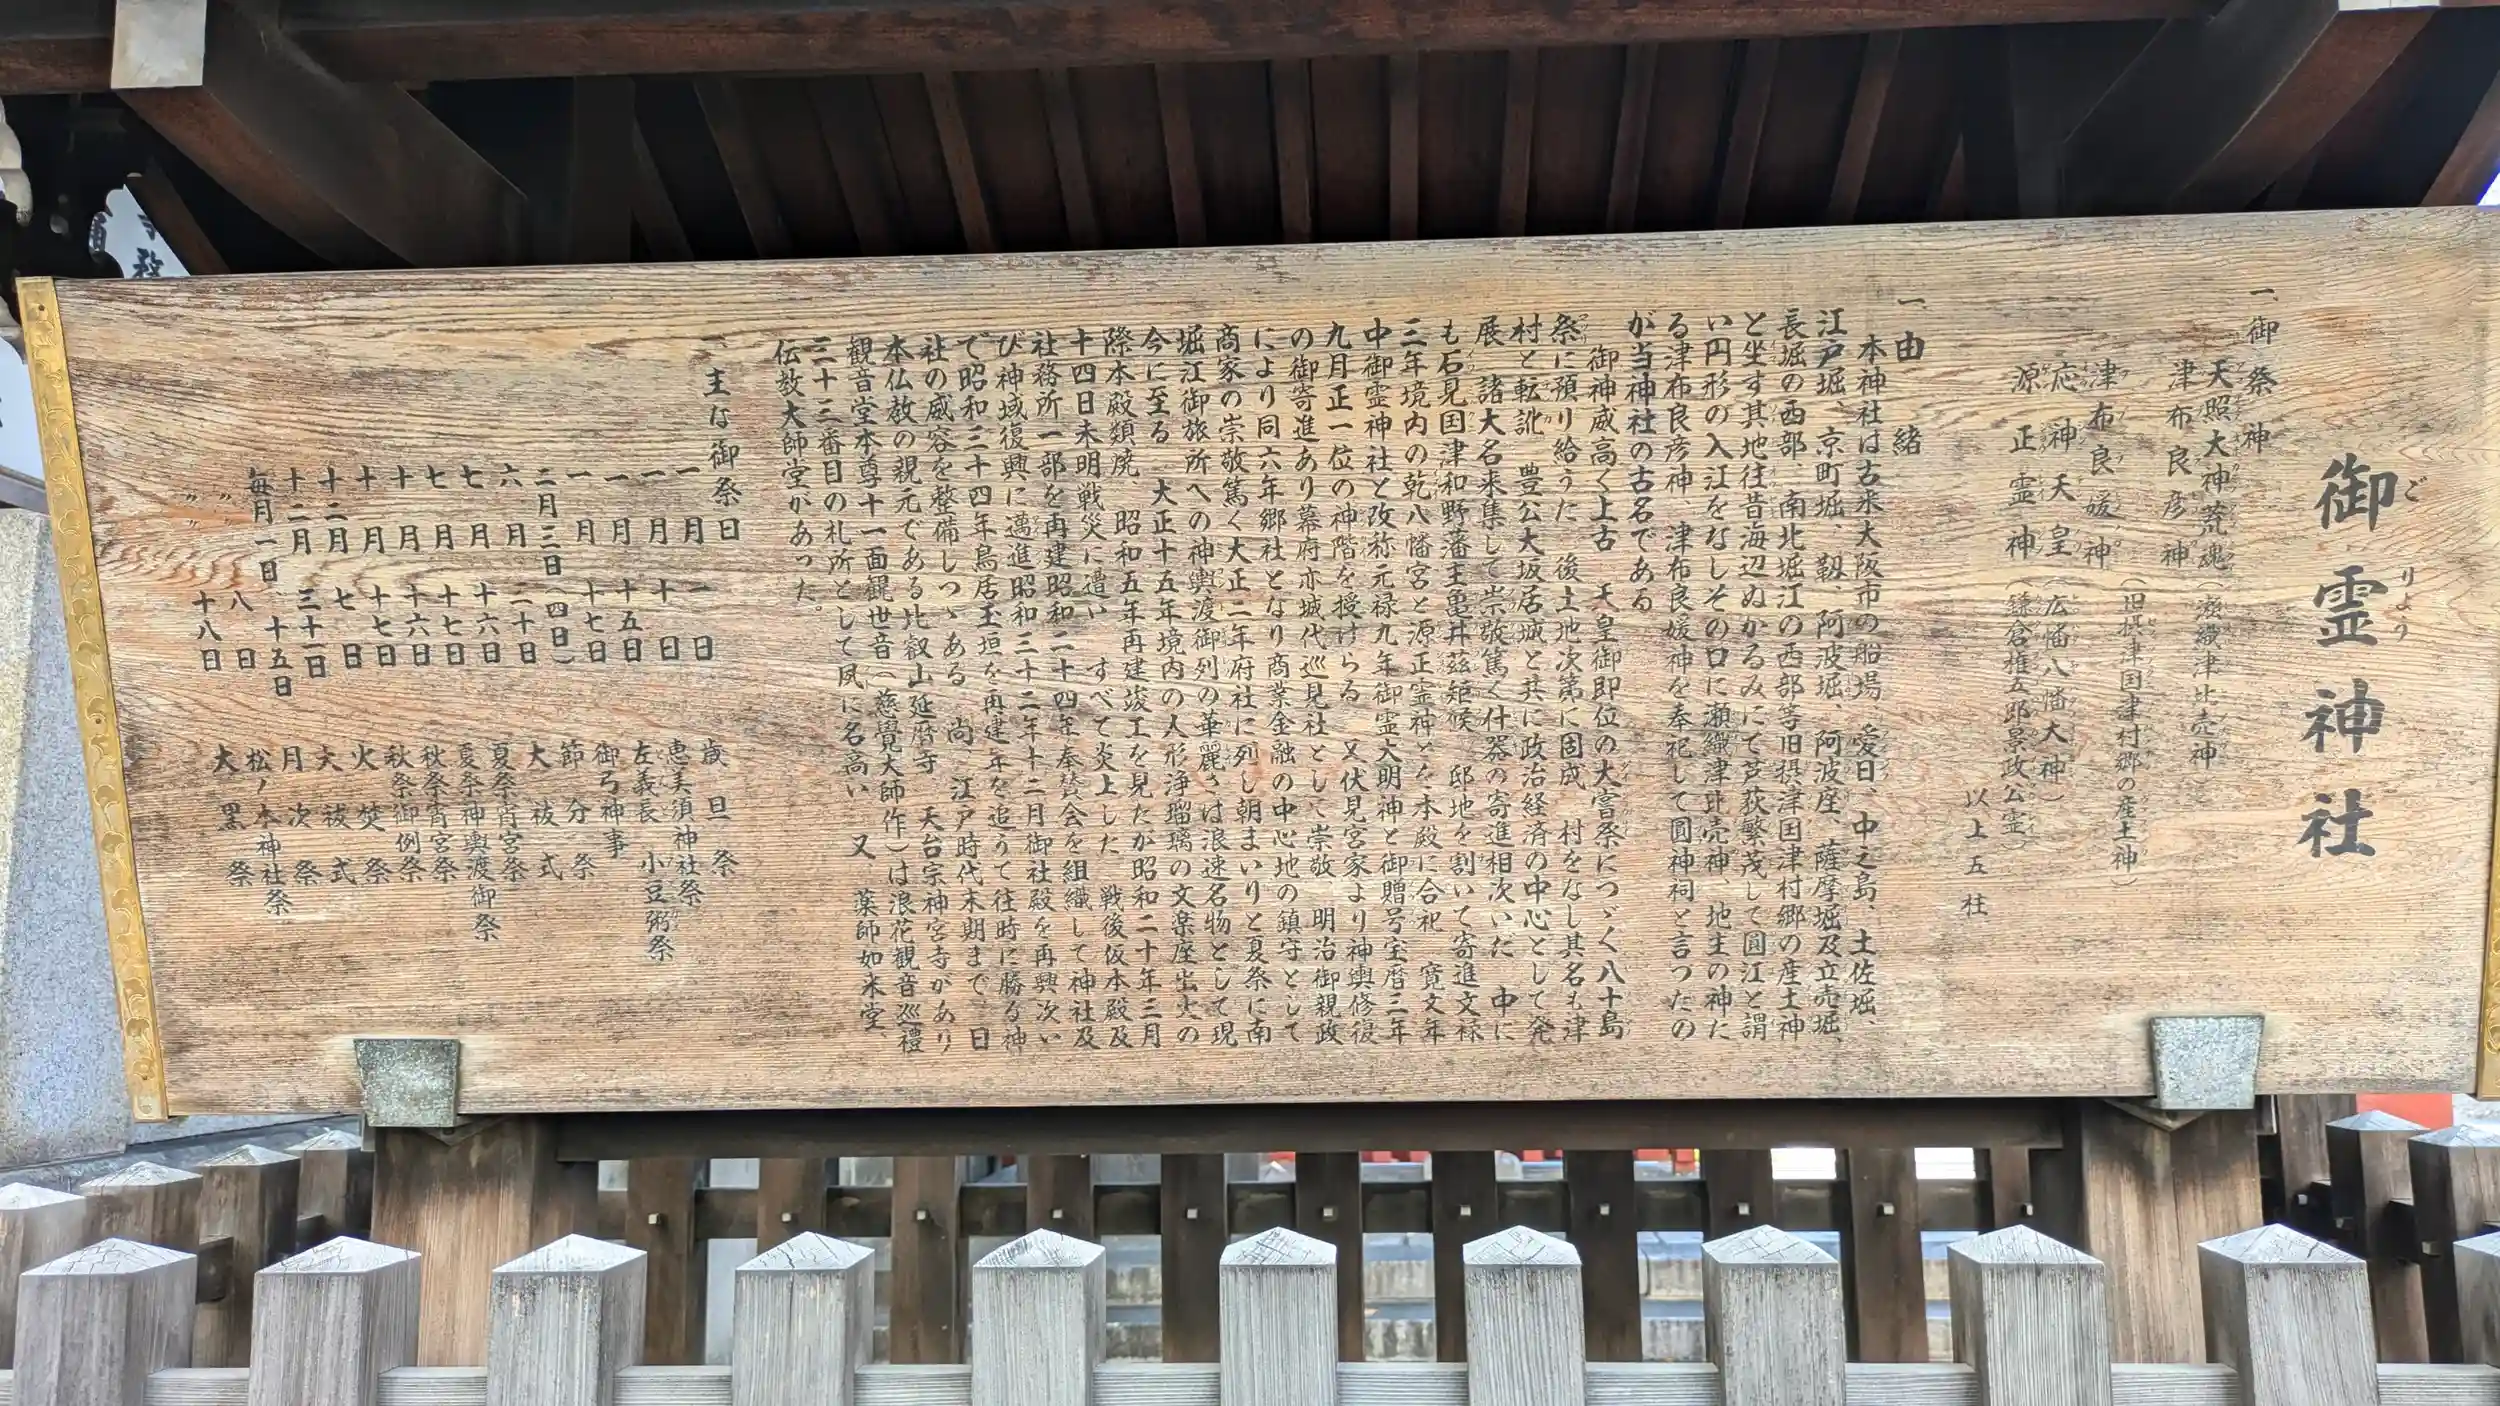 御霊神社
ごりょう
一、御祭神
天照大神荒魂（瀬織津比売神）
津布良彦神
津布良媛神（旧摂津国津村郷の産土神）
応神天皇（広幡八幡大神）
源正霊神（鎌倉権五郎景政公霊）
以上五柱
一、由緒
本神社は古来大阪市の船場、愛日、中之島、土佐堀、
江戸堀、京町堀、靱、阿波堀、阿波座、薩摩堀及立売堀、
長堀の西部、南北堀江の西部等旧摂津国津村郷の産土神
と坐す其地往昔海辺ぬかるみにて芦荻繁茂して圓江と謂
い円形の入江をなしその口に瀬織津比売神、地主の神た
る津布良彦神、津布良媛神を奉祀して圓神祠と言つたの
が当神社の古名である
御神威高く上古　天皇御即位の大嘗祭につゞく八十島
祭に預り給うた　後土地次第に固成　村をなし其名も津
村と転訛　豊公大坂居城と共に政治経済の中心として発
展　諸大名来集して崇敬篤く什器の寄進相次いだ　中に
も石見国津和野藩主亀井茲矩候　邸地を割いて寄進文禄
三年境内の乾八幡宮と源正霊神とを本殿に合祀　寛文年
中御霊神社と改称元禄九年御霊大明神と御贈号宝暦三年
九月正一位の神階を授けらる　又伏見宮家より神輿修復
の御寄進あり幕府亦城代巡見社として崇敬、明治御親政
により同六年郷社となり商業金融の中心地の鎮守として
商家の崇敬篤く大正二年府社に列し朝まいりと夏祭に南
堀江御旅所への神輿渡御列の華麗さは浪速名物として現
今に至る　大正十五年境内の人形浄瑠璃の文楽座出火の
際本殿類焼、昭和五年再建竣工を見たが昭和二十年三月
十四日未明戦災に遭い　すべて炎上した　戦後仮本殿及
社務所一部を再建昭和二十四年奉賛会を組織して神社及
び神域復興に邁進昭和三十二年十二月御社殿を再興次い
で昭和三十四年鳥居玉垣を再建年を追うて往時に勝る神
社の威容を整備しつゝある　尚、江戸時代末期まで、日
本仏教の親元である比叡山延暦寺　天台宗神宮寺があり
観音堂本尊十一面観世音（慈覺大師作）は浪花観音巡禮
三十三番目の札所として夙に名高い　又、薬師如来堂、
伝教大師堂があった。
一、主な御祭日
一月　一日　歳旦祭
一月　十日　恵美須神社祭
一月　十五日　左義長　小豆粥祭
一月　十七日　御弓神事
二月三日（四日）　節分祭
六月　二十日　大祓式
七月　十六日　夏祭宵宮祭
七月　十七日　夏祭神輿渡御祭
十月　十六日　秋祭宵宮祭
十月　十七日　秋祭御例祭
十二月　七日　火焚祭
十二月　三十一日　大祓式
毎月一日、十五日　月次祭
〃　八日　松ノ木神社祭
〃　十八日　大黒祭